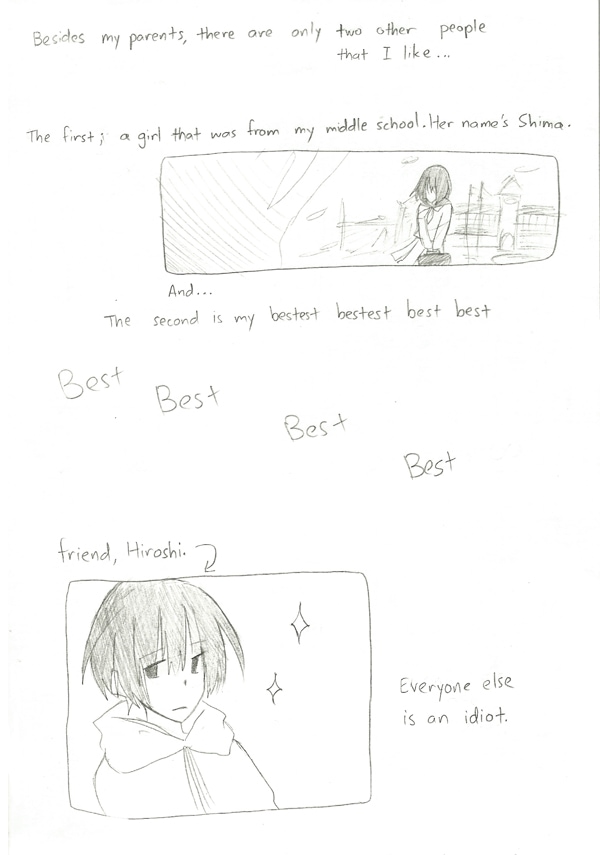 Besides my parents, there are only two other people
that I like...
The first; a girl that was from my middle school. Her name's Shima.
And...
The second is my bestest bestest best best
Best
Best
Best
Best
friend, Hiroshi.
Everyone else
is an idiot.